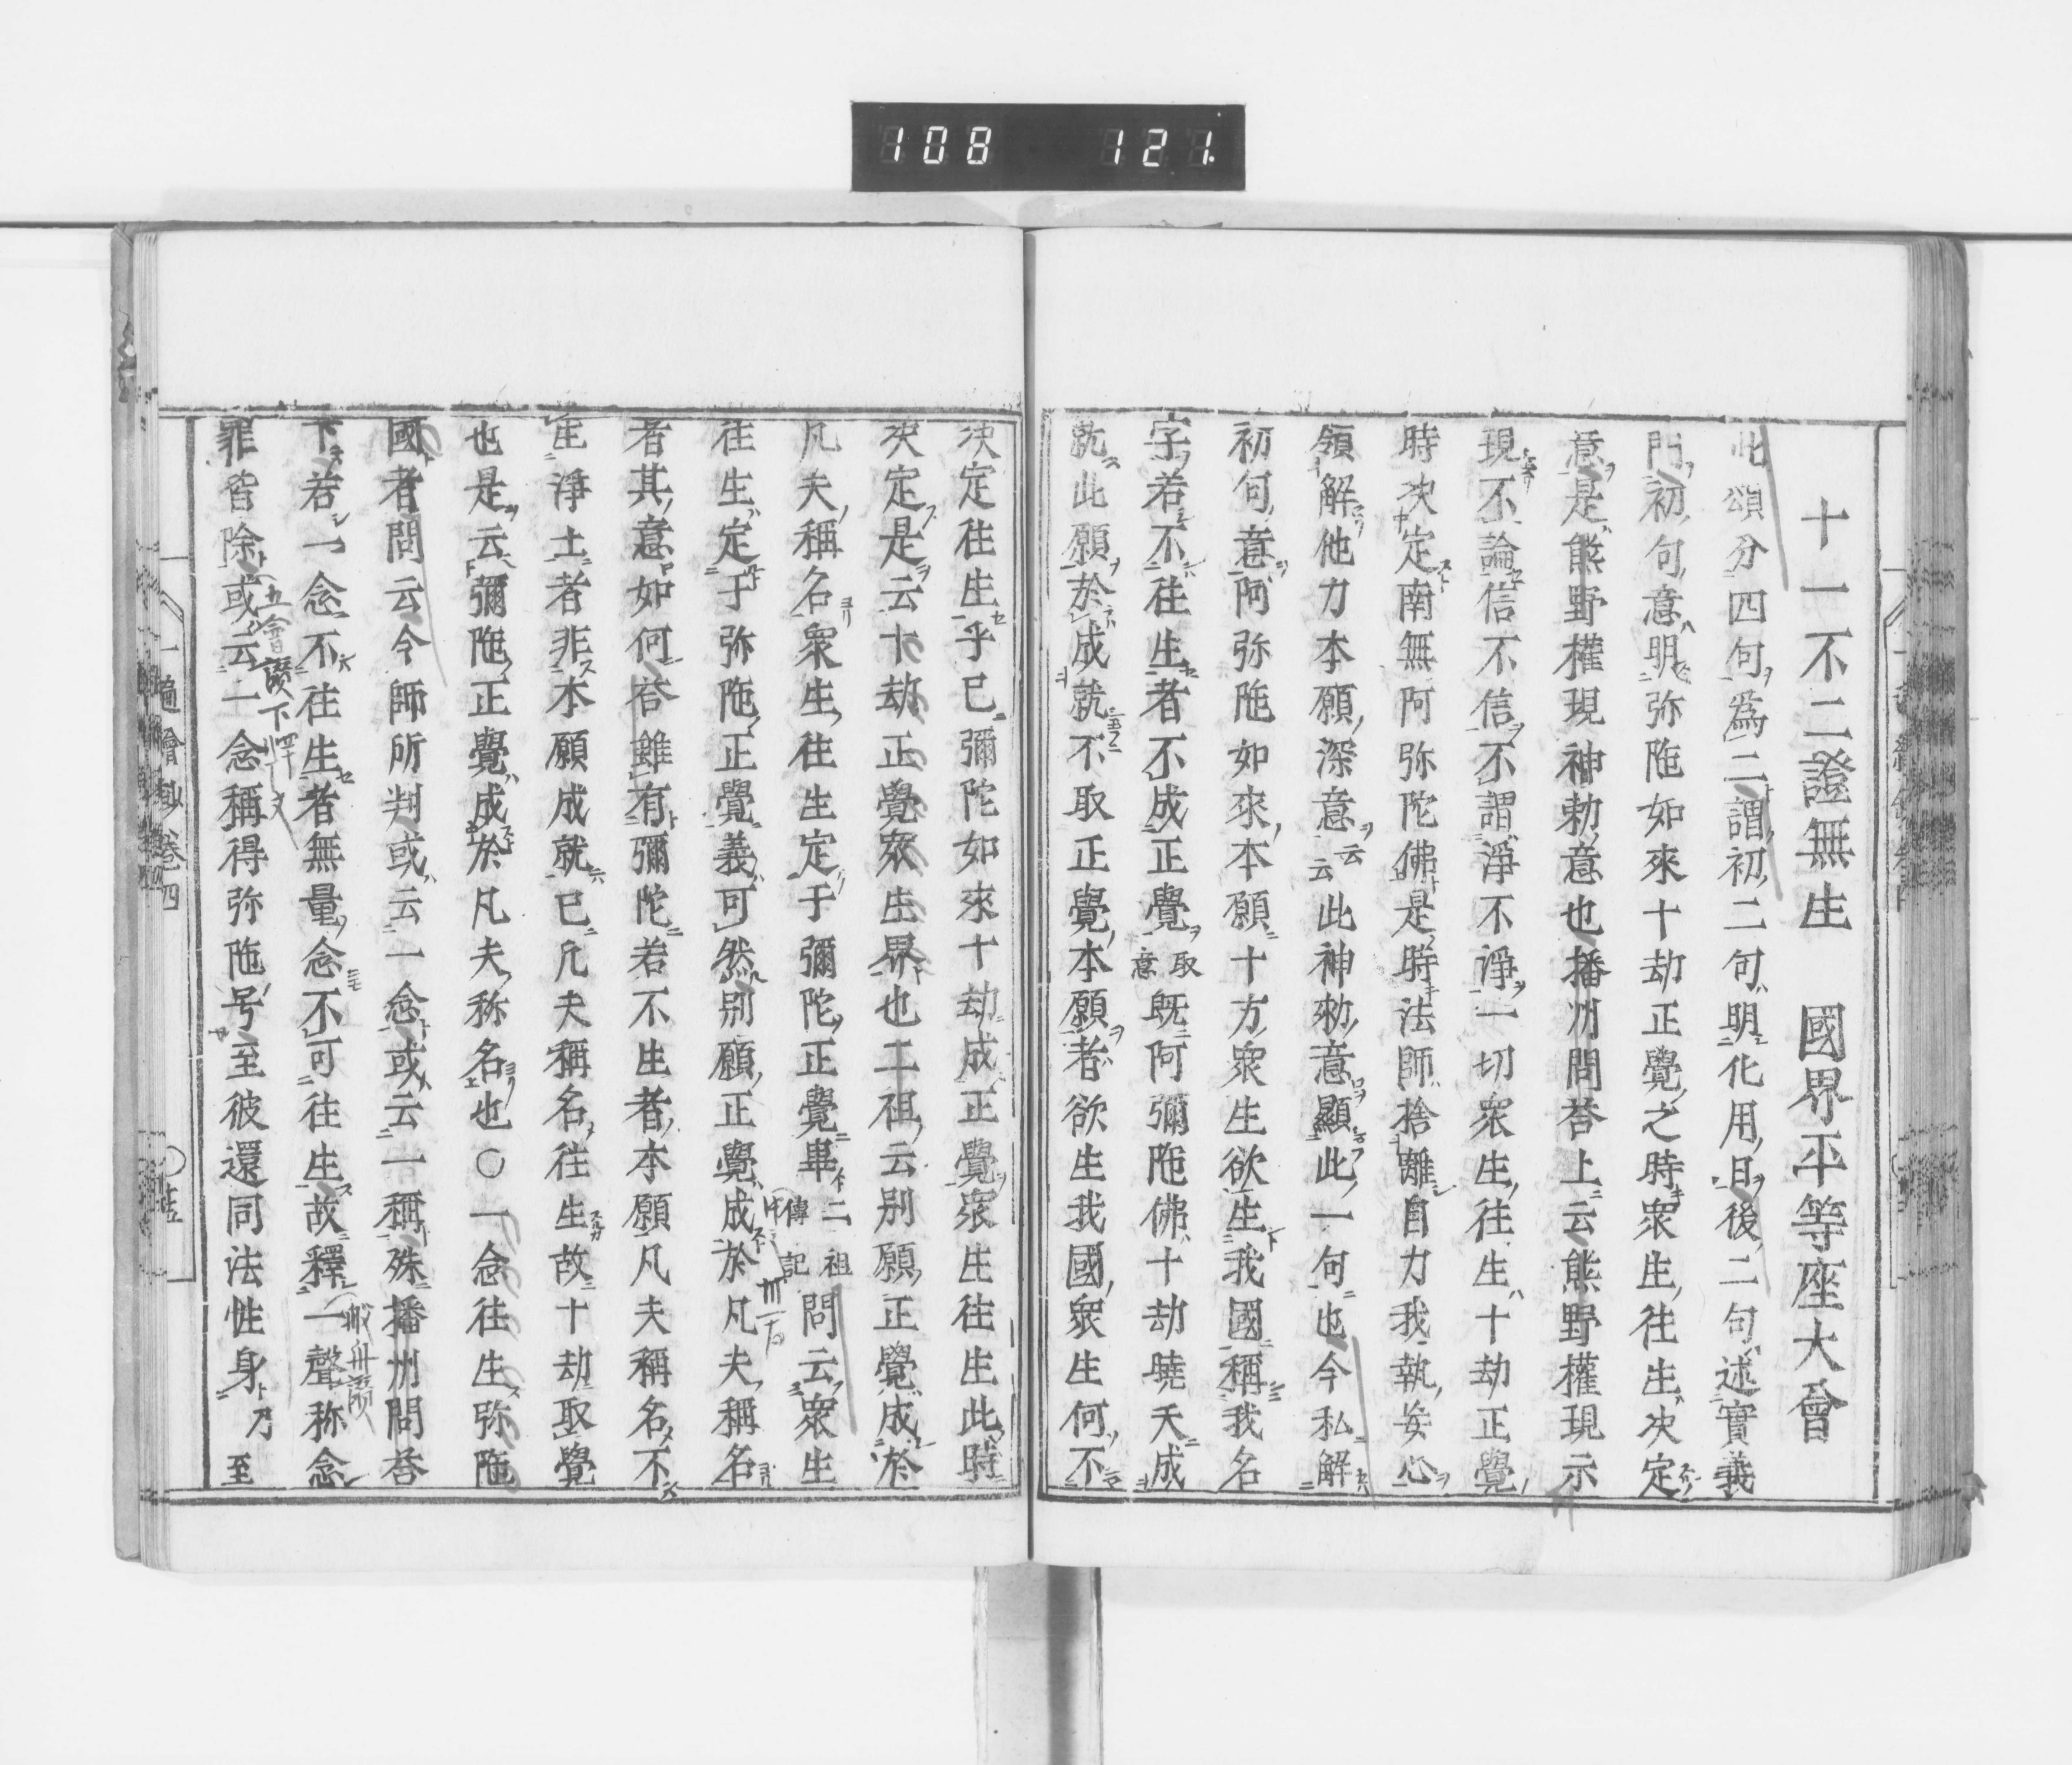 108 121
十一不二證無生 國界平等座大會
此頌分四句爲二謂初二句明化用日後二句述實義
門初句意明弥陁如來十劫正覺之時衆生往生决定
意是熊野權現神勅意也播州問荅上云熊野權現示
現不論信不信不謂淨不淨一切衆生往生十劫正覺
時决定南無阿弥陀佛是時法師捨離自力我執妄心
領解他力本願深意云云此神勑意顯此一句也今私解
初句意阿弥陁如來本願十方衆生欲生我國稱我名
字若不往生者不成正覺取意既阿彌陁佛十劫曉天成
就此願於成就不取正覺本願者欲生我國衆生何不
决定往生乎已彌陀如來十劫成正覺衆生往生此時
决定是云十劫正覺衆生界也二祖云别願正覺成於
凡夫稱名衆生往生定于彌陀正覺畢二祖傳記問云衆生
往生定于弥陁正覺義可然别願正覺成於凡夫稱名
者其意如何荅雖有彌陀若不生者本願凡夫稱名不
生淨土者非本願成就已凡夫稱名往生故十劫取覺
也是云彌陁正覺成於凡夫称名也○一念往生弥陁
國者問云今師所判或云一念或云一稱殊播州問荅
下若一念不往生者無量念不可往生故釋一聲称念
罪皆除或云一念稱得弥陁号至彼還同法性身乃至
五會讚下
般舟讚